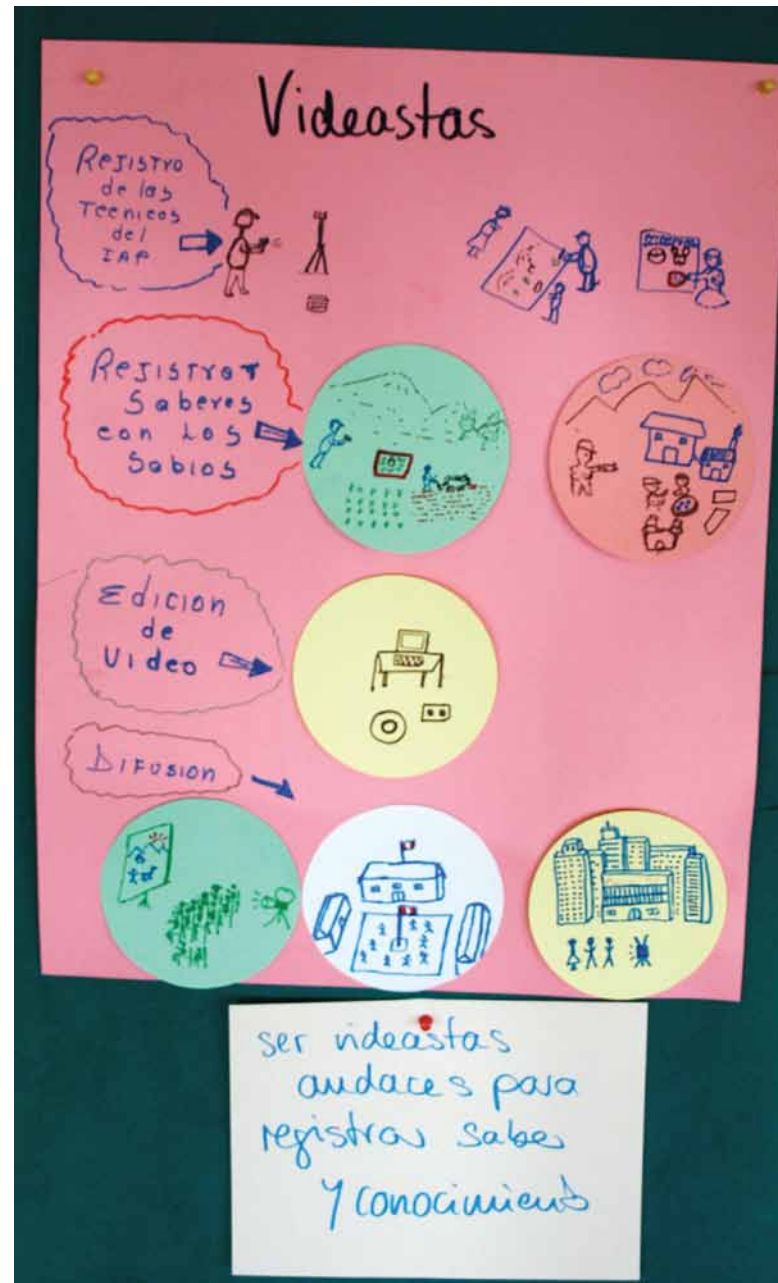 Videastas
Registro
de las
Tecnicos
del
IAP
Registrar
Saberes
con Los
Sabios
Edicion
de
Video
Difusion
ser videastas
audaces para
registrar saber
y conocimiento